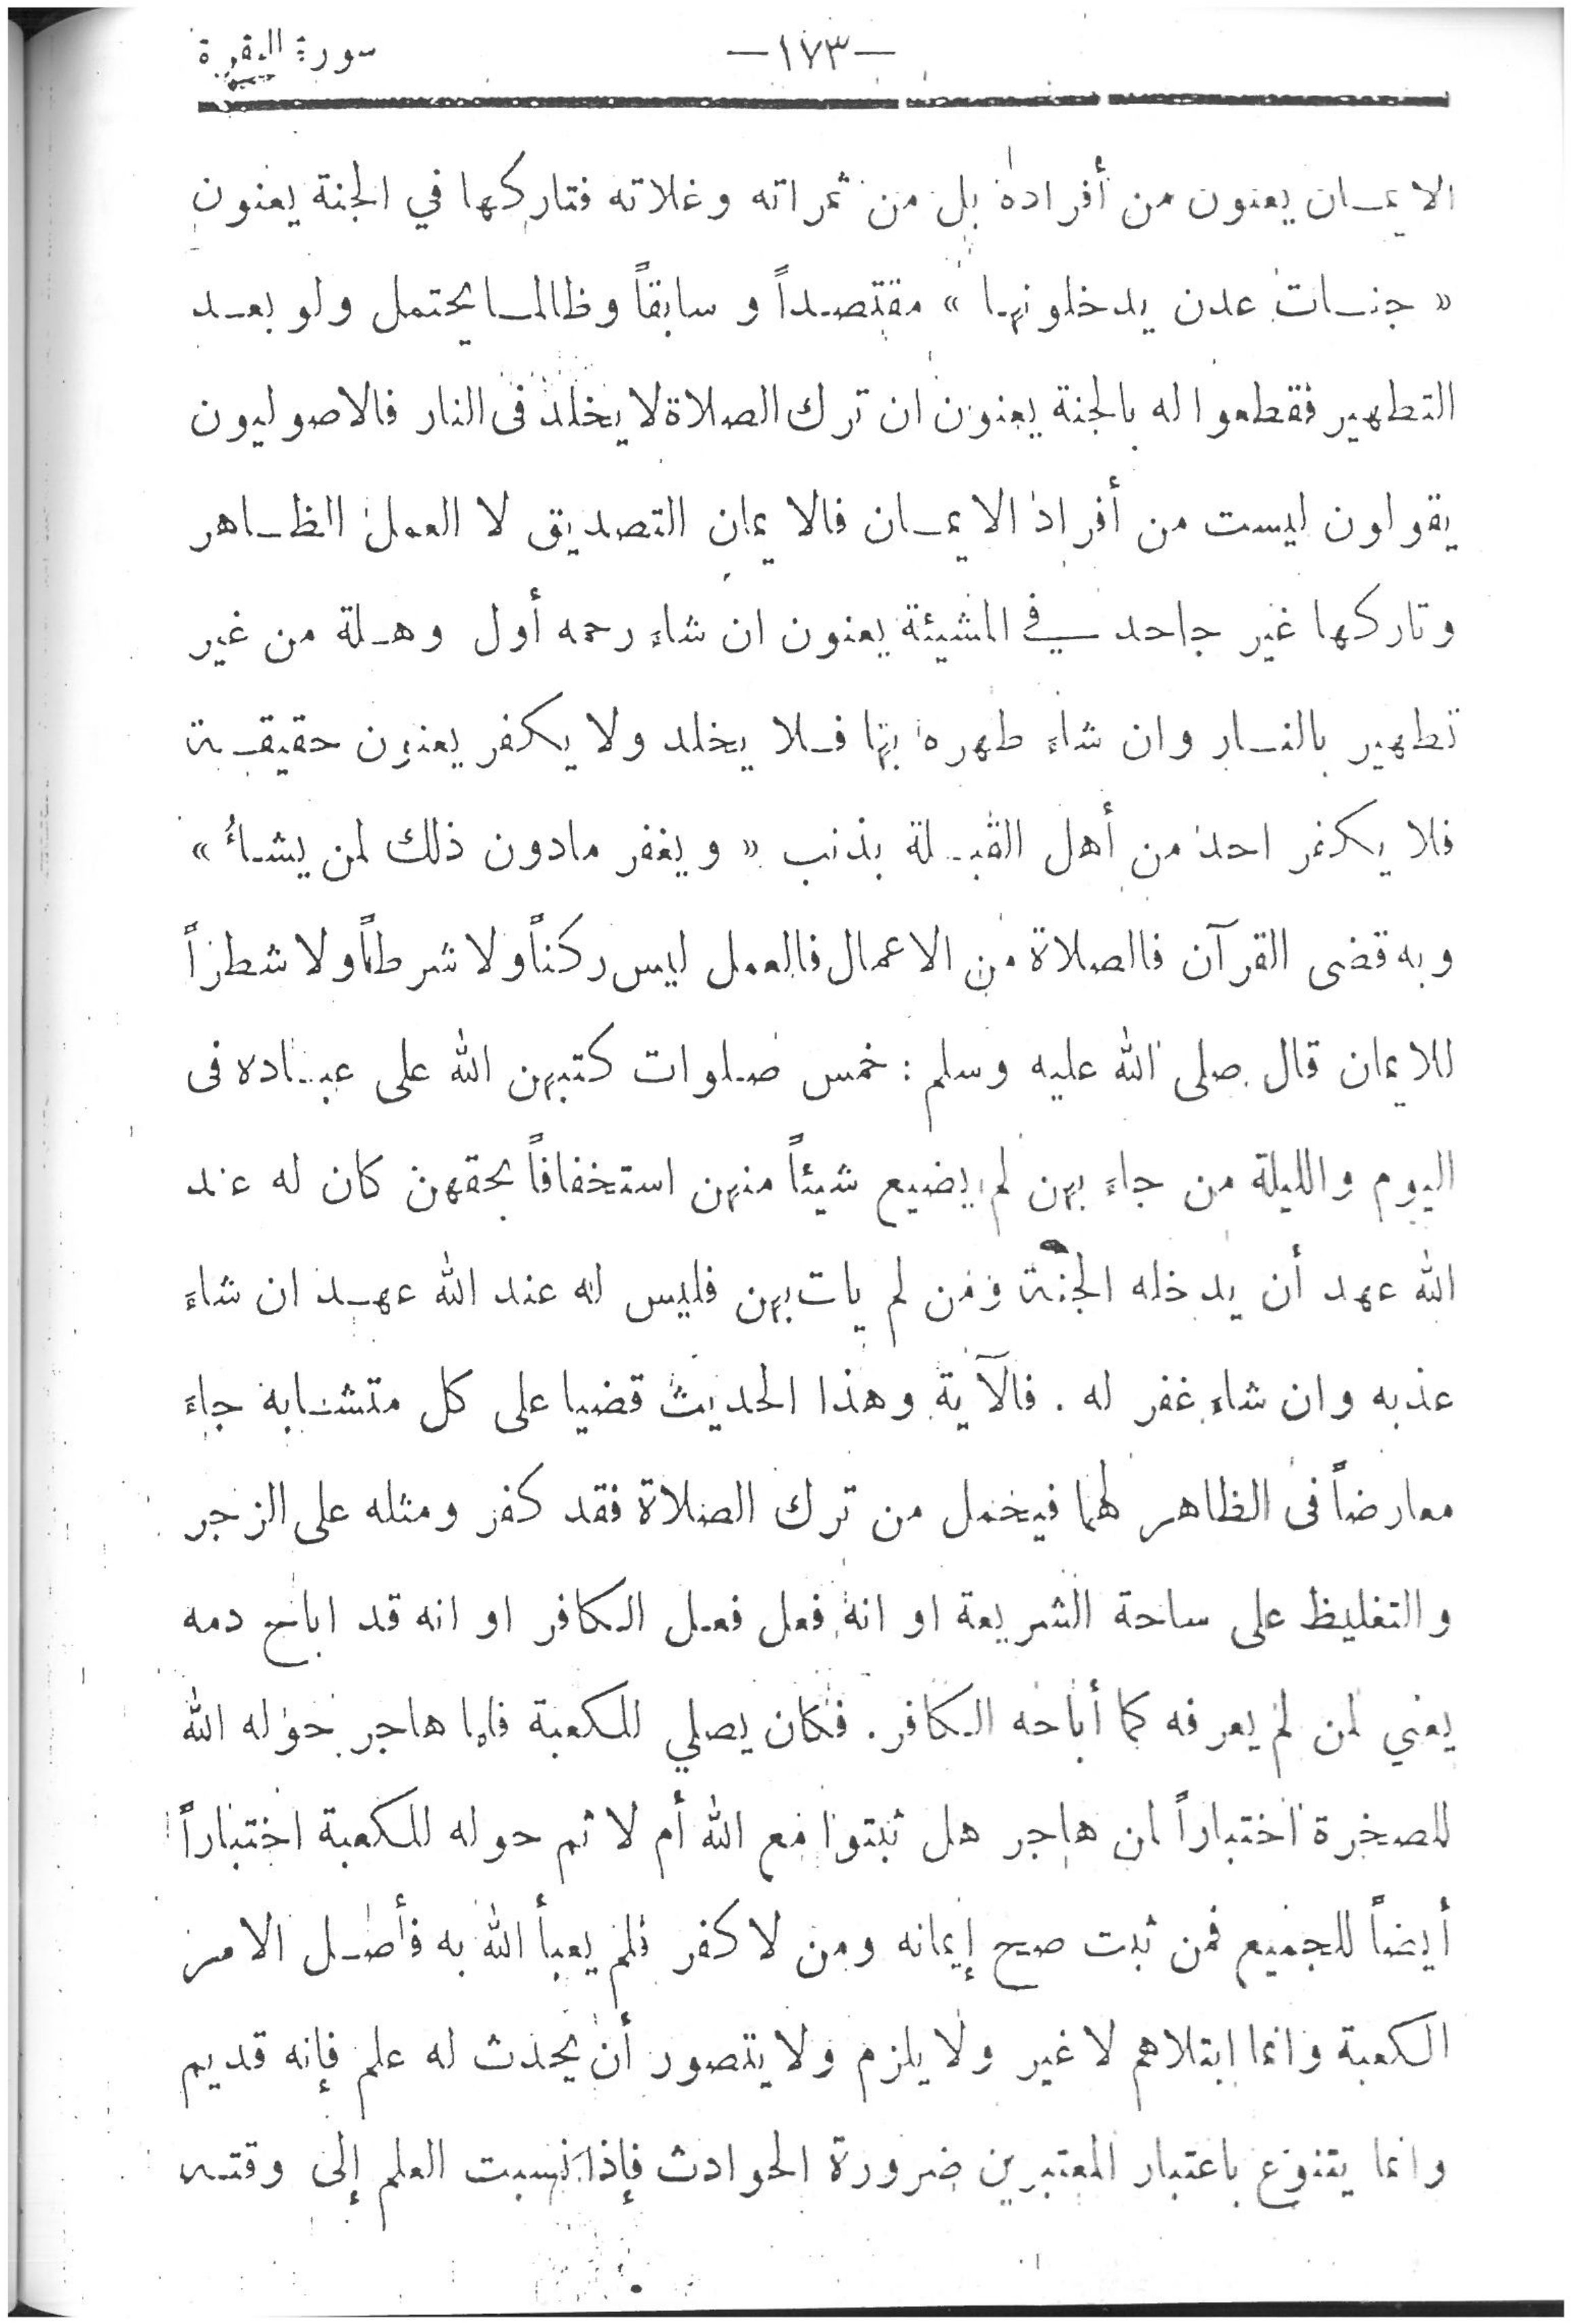 سورة البقرة
—١٧٣—
الايمان يعنون من أفراده بل من ثمراته وغلاته فتاركها في الجنة يعنون
« جنات عدن يدخلونها » مقتصداً و سابقاً وظالما يحتمل ولو بعد
التطهير فقطعوا له بالجنة يعنون ان ترك الصلاة لا يخلد فى النار فالاصوليون
يقولون ليست من أفراد الايمان فالايمان التصديق لا العمل الظاهر
وتاركها غير جاحد في المشيئة يعنون ان شاء رحمه أول وهلة من غير
تطهير بالنار وان شاء طهره بها فلا يخلد ولا يكفر يعنون حقيقة
فلا يكفر احد من أهل القبلة بذنب « ويغفر مادون ذلك لمن يشاءُ »
وبه قضى القرآن فالصلاة من الاعمال فالعمل ليس ركناً ولا شرطاً ولا شطراً
للايمان قال صلى الله عليه وسلم : خمس صلوات كتبهن الله على عباده فى
اليوم والليلة من جاء بهن لم يضيع شيئاً منهن استخفافاً بحقهن كان له عند
الله عهد أن يدخله الجنة ومن لم يات بهن فليس له عند الله عهد ان شاء
عذبه وان شاء غفر له . فالآية وهذا الحديث قضيا على كل متشابه جاء
معارضاً فى الظاهر لهما فيحمل من ترك الصلاة فقد كفر ومثله على الزجر
والتغليظ على ساحة الشريعة او انه فعل فعل الكافر او انه قد اباح دمه
يعني لمن لم يعرفه كما أباحه الكافر . فكان يصلي للكعبة فلما هاجر حوله الله
للصخرة اختباراً لمن هاجر هل ثبتوا مع الله أم لا ثم حوله للكعبة اختباراً
أيضاً للجميع فمن ثبت صح إيمانه ومن لا كفر فلم يعبأ الله به فأصل الامر
الكعبة وانما ابتلاهم لا غير ولا يلزم ولا يتصور أن يحدث له علم فإنه قديم
وانما يتنوع باعتبار المعتبرين ضرورة الحوادث فإذا نسبت العلم إلى وقته